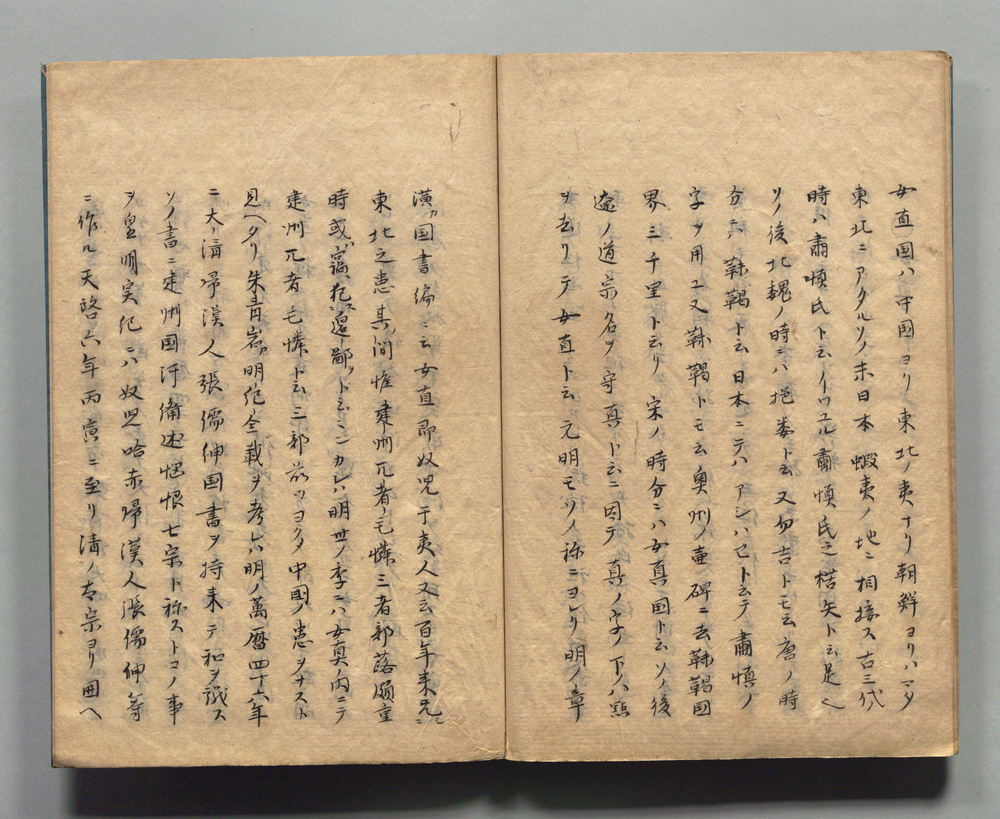 女直国ハ中国ヨリ東北ノ夷ナリ朝鮮ヨリハマタ
東北ニアタルソノ末日本蝦夷ノ地ニ相接ス古三代
時ハ肅慎氏ト云イワユル肅慎氏之楛矢ト云是
ソノ後北魏ノ時ニハ挹婁ト云又勿吉トモ云唐ノ時
分ニハ靺鞨ト云日本ニテハアシハセトム云テ肅慎ノ
字ヲ用ユ又靺鞨トモ云奥州ノ壷碑ニ去靺鞨国
界三千里ト云リ宋ノ時分ニハ女真国ト云ソノ後
遼ノ道宗名ヲ守真ト云ニ因テ真ノ字ノ下ハ点
ヲ去リテ女直ト云元明モソノ称ニヨレリ明ノ章
潢カ国書編ニ云女直即奴児干夷人又云百年来
東北之患其間惟建州兀者毛憐三者部落頗重
時或竊犯邉鄙ト云シカレハ明世ノ季ニハ女真ノ内ニテ
建州兀者毛憐ト云三部ツヨクタ中国ノ患ヲナスト
見ヘタリ朱青岩明紀全載ヲ考レハ明ノ萬暦四十六年
ニ大清帰漢人張儒紳国書ヲ持来テ和ヲ議ス
ソノ書ニ建州国汗備述惱恨七宗ト称ストコノ事
ヲ皇明実紀ニハ奴児哈赤帰漢人張儒紳等
ニ作ル天啓六年丙寅ニ至リ清ノ太宗ヨリ囲ヘ